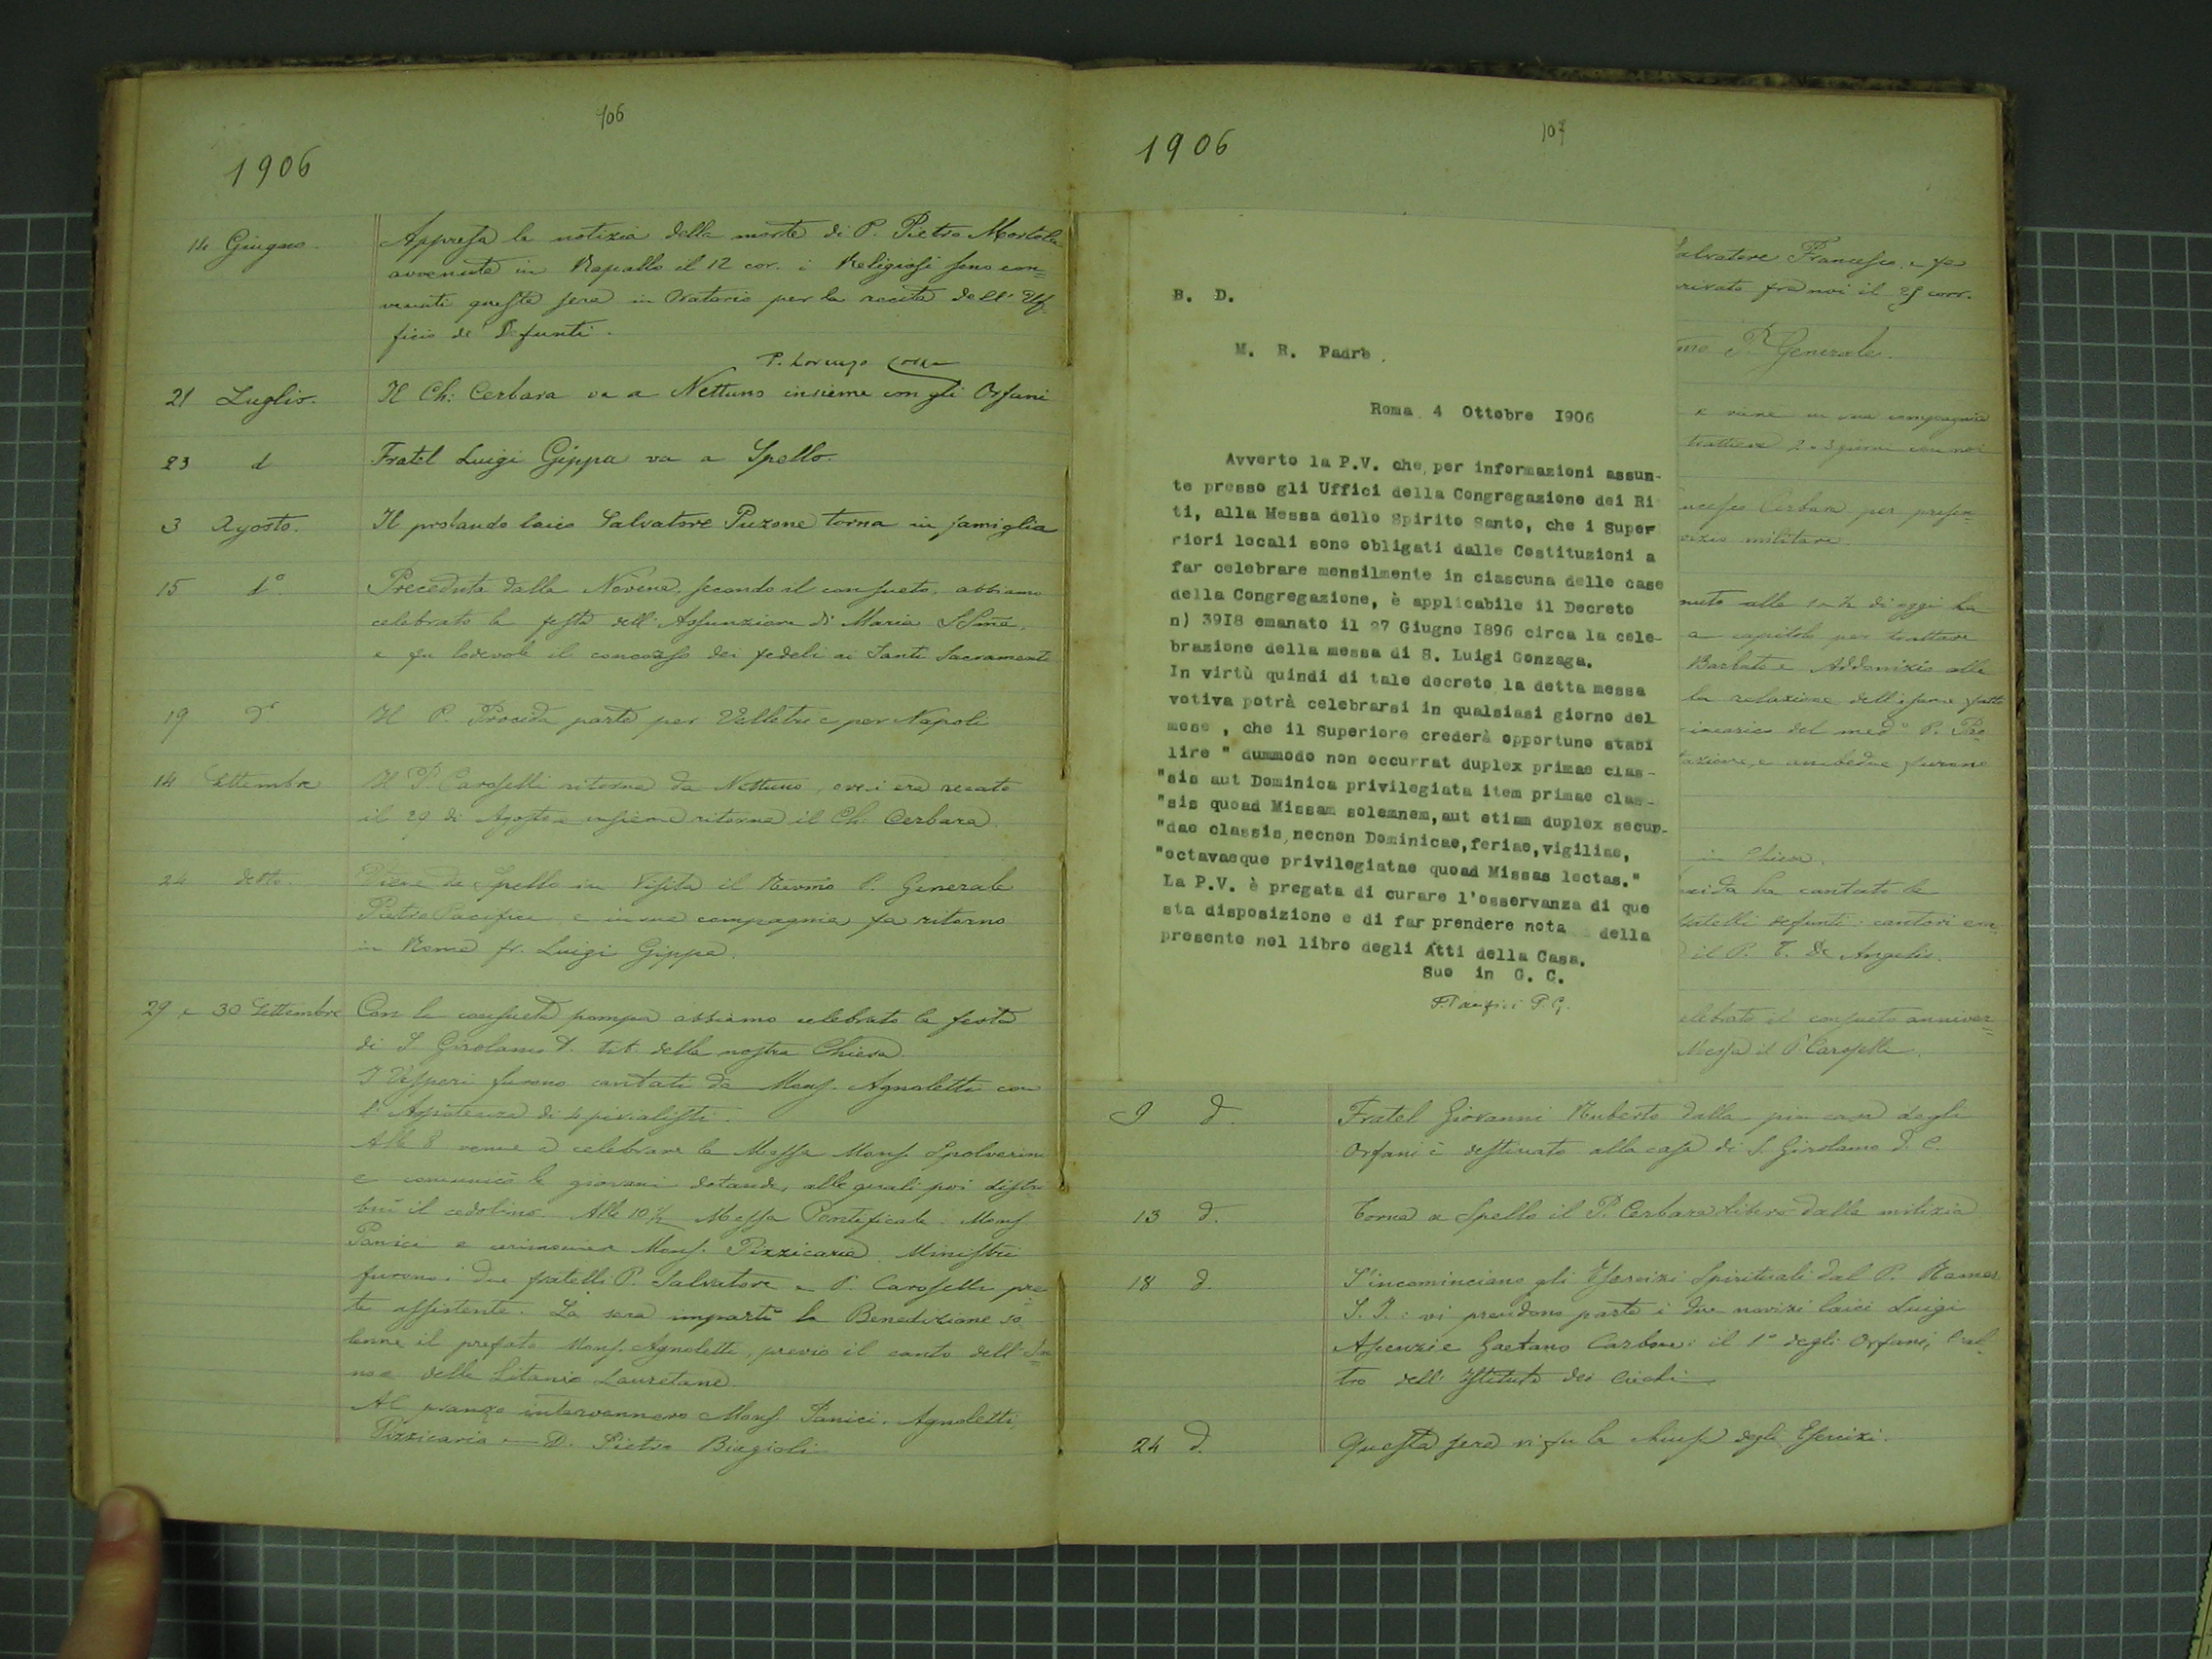 106
1906
14 Giugno. Appresa la notizia della morte di P. Pietro Mortola
avvenuta in Rapallo il 12 cor. i Religiosi sono con=
venuti questa sera in Oratorio per la recita dell' Uf
ficio de' Defunti.
P. Lorenzo
21 Luglio. Il Ch: Cerbara va a Nettuno insieme con gli Orfani
23 d Fratel Luigi Gippa va a Spello.
3 Agosto. Il probando laico Salvatore Puzone torna in famiglia
15 do. Preceduta dalla Novena, secondo il consueto, abbiamo
celebrato la festa dell' Assunzione di Maria SSma,
e fu lodevole il concorso dei fedeli ai Santi Sacramenti
19 do Il P. Procida parte per Velletri e per Napoli
14 Settembre Il P. Caroselli ritorna da Nettuno, ove si era recato
il 29 di Agosto e insieme ritorna il Ch. Cerbara.
24 detto. Viene da Spello in Visita il Revmo P. Generale
Pietro Pacifici, e in sua compagnia fa ritorno
in Roma fr. Luigi Gippa.
29 e 30 Settembre Con la consueta pompa abbiamo celebrato la festa
di S. Girolamo D. tit. della nostra Chiesa.
I Vesperi furono cantati da Mons. Agnoletti con
l' Assistenza di 4 pivialisti.
Alle 8 venne a celebrare la Messa Mons. Spolverini
e comunicò le giovani dotande, alle quali poi distri
buì il cedolino. Alle 10½ Messa Pontificale: Mons.
Panici e cerimoniere Mons. Pizzicaria. Ministri
furono i due fratelli P. Salvatore e P. Caroselli pre=
te assistente. La sera impartì la Benedizione so
lenne il prefato Mons. Agnoletti, previo il canto dell' In=
no e delle Litanie Lauretane.
Al pranzo intervennero Mons. Panici, Agnoletti,
Pizzicaria e D. Pietro Biagioli
107
1906
B. D.
M. R. Padre.
Roma 4 Ottobre I906
Avverto la P.V. che, per informazioni assun-
te presso gli Uffici della Congregazione dei Ri
ti, alla Messa dello Spirito Santo, che i Super
riori locali sono obligati dalle Costituzioni a
far celebrare mensilmente in ciascuna delle case
della Congregazione, è applicabile il Decreto
n) 39I8 emanato il 27 Giugno I896 circa la cele-
brazione della messa di S. Luigi Gonzaga.
In virtù quindi di tale decreto, la detta messa
votiva potrà celebrarsi in qualsiasi giorno del
mese , che il Superiore crederà opportuno stabi
lire " dummodo non occurrat duplex primae clas-
"sis aut Dominica privilegiata item primae clas-
"sis quoad Missam solemnem, aut etiam duplex secun-
"dae classis, necnon Dominicae, feriae, vigiliae,
"octavaeque privilegiatae quoad Missas lectas."
La P.V. è pregata di curare l'osservanza di que
sta disposizione e di far prendere nota della
presente nel libro degli Atti della Casa.
Suo in G. C.
P. Pacifici P. G.
Salvatore Francesco, e fa
rrivato fra noi il 25 corr.
mo P. Generale.
e viene in sua compagnia
trattiene 2 o 3 giorni con noi
ncesco Cerbara per presen=
vizio militare.
nuto alle 10 ½ di oggi ha
a capitolo per trattare
Barbato e Addonizio alla
la relazione dell' esame fatto
incarico del medo P. Pro
tazione, e ambedue furono
in Chiesa.
cida ha cantato la
fratelli defunti: cantori era
il P. T. De Angelis.
elebrato il consueto anniver=
Messa il P. Caroselli.
9 d. Fratel Giovanni Ruberto dalla pia casa degli
Orfani è destinato alla casa di S. Girolamo d. C.
13 d. Torna a Spello il P. Cerbara libero dalla milizia
18 d. S'incominciano gli Esercizi Spirituali dal P.
S. J.: vi prendono parte i due novizi laici Luigi
Ascenzi e Gaetano Carbone: il 1° degli Orfani, l'al
tro dell' Istituto dei Ciechi
24 d. Questa sera vi fu la chiusa degli Esercizi.